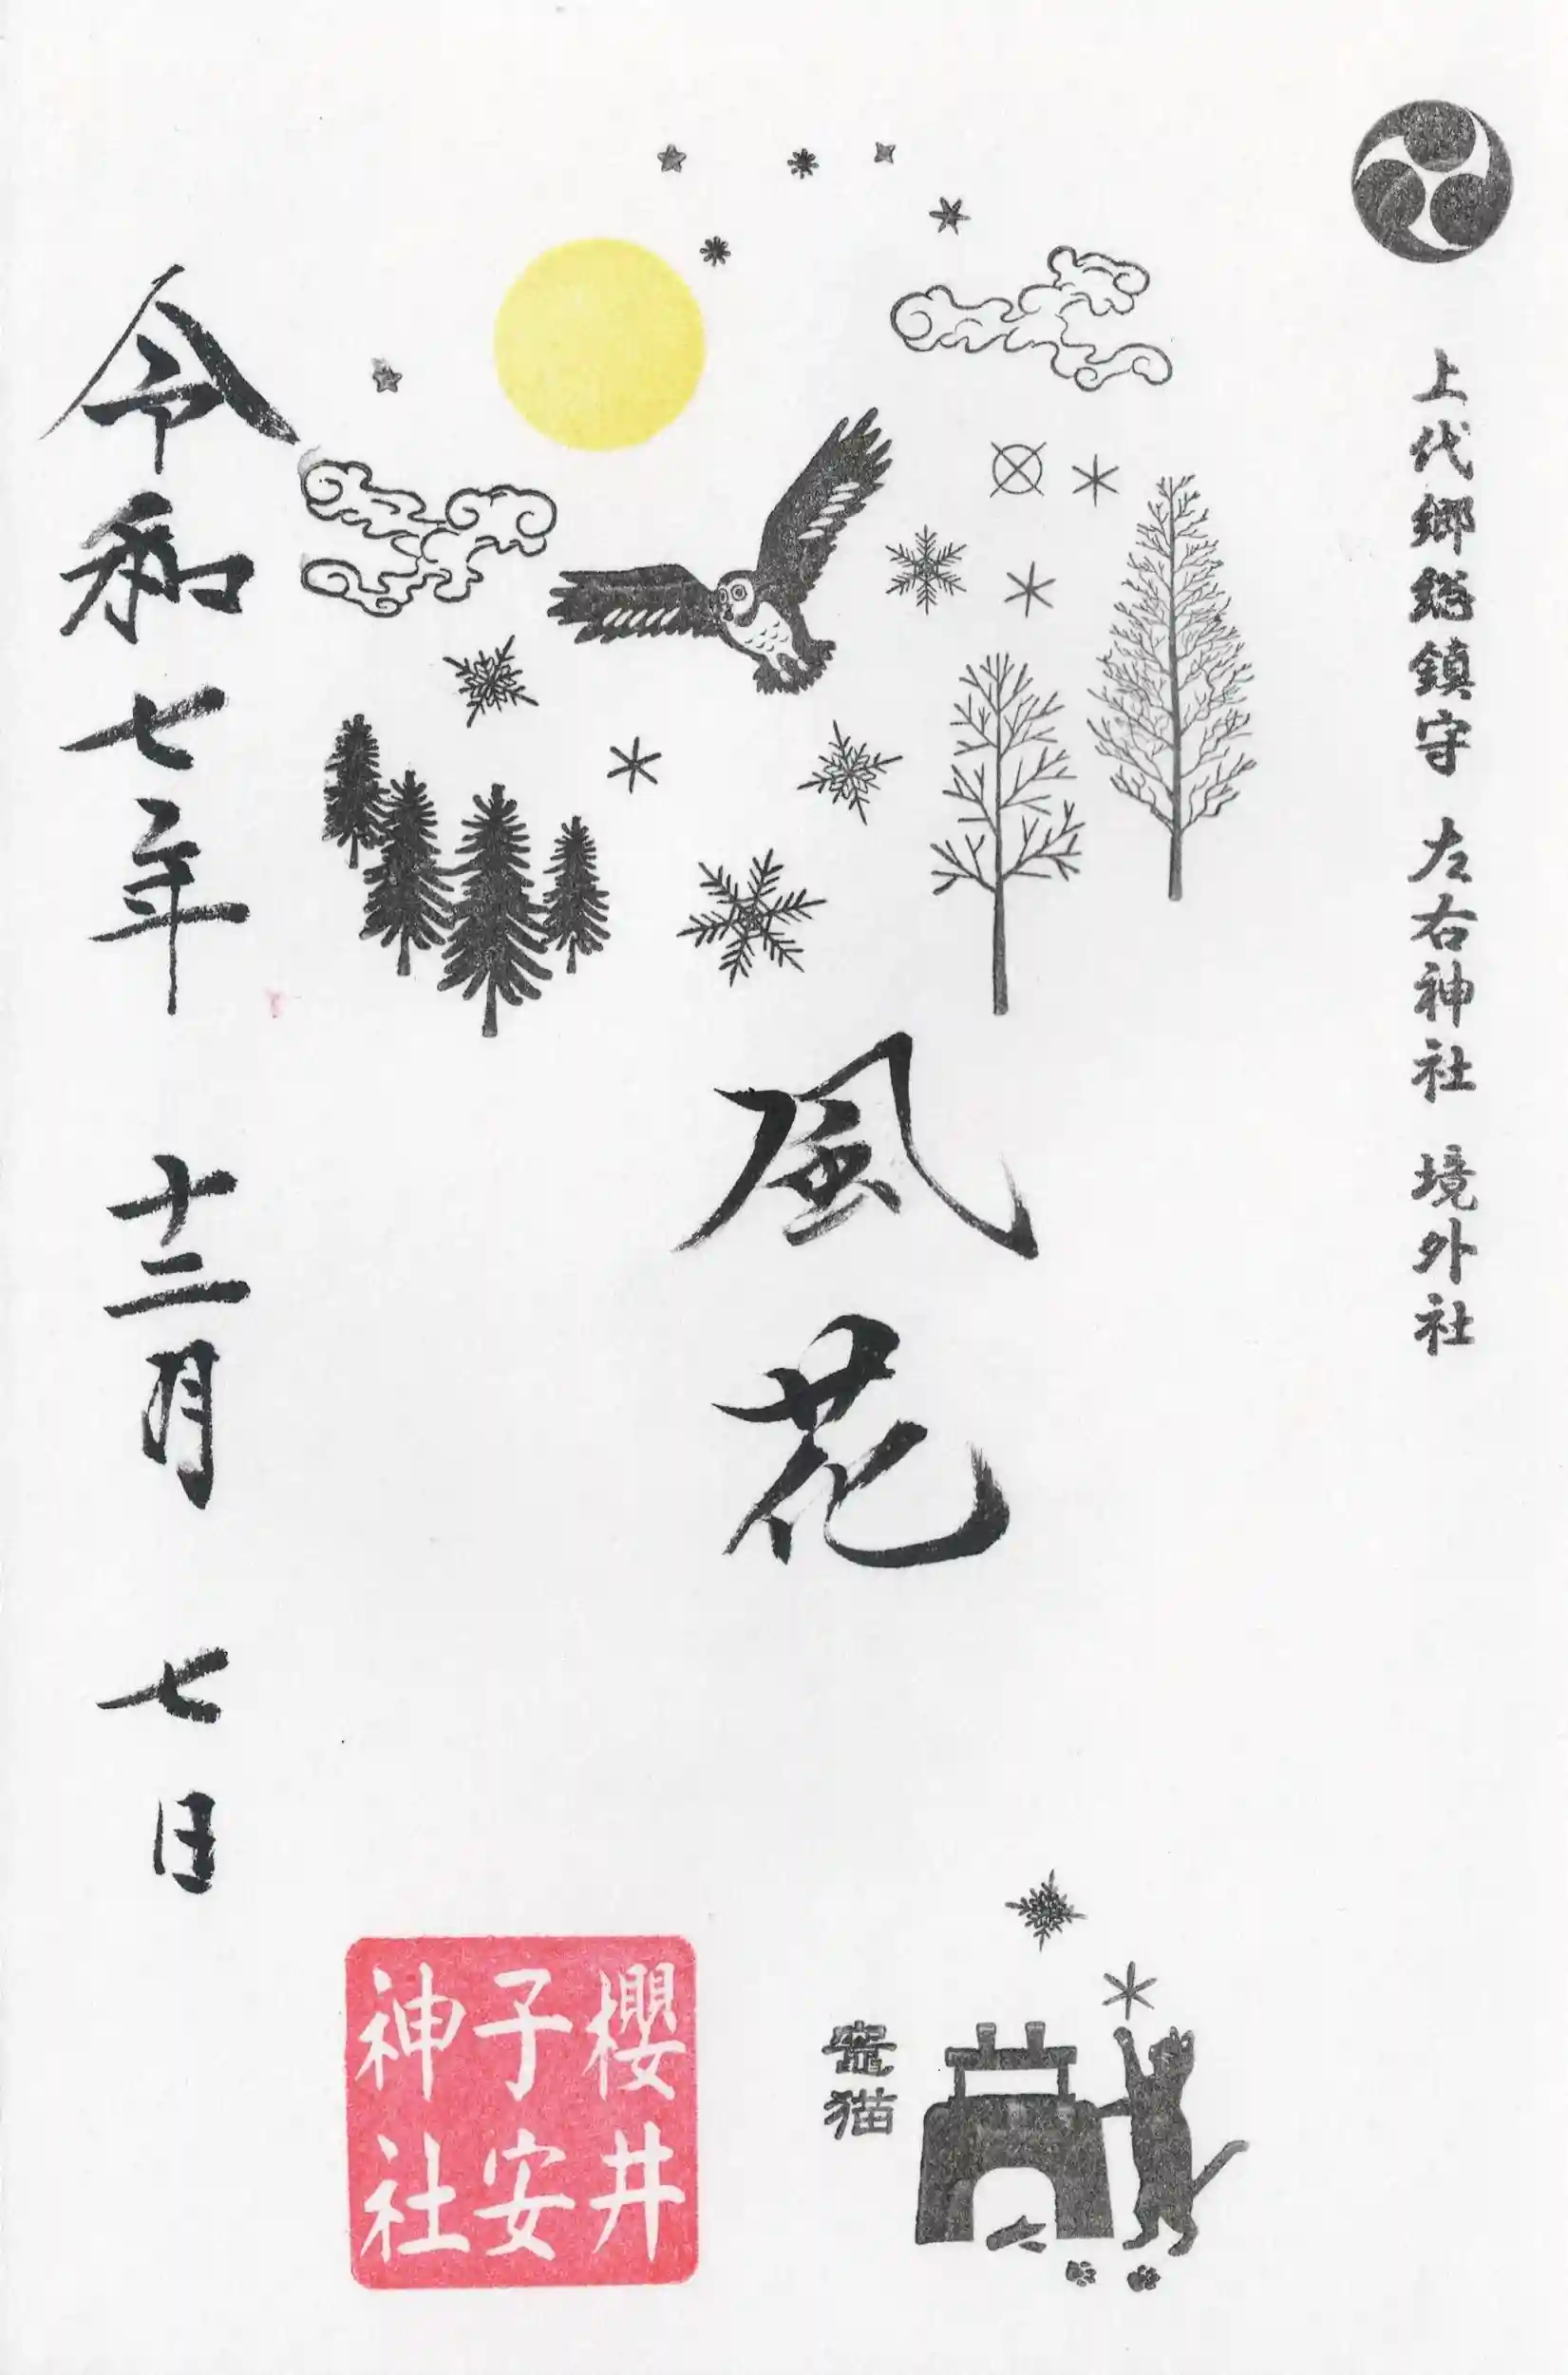 上代郷総鎮守 左右神社 境外社
風花
竈猫
櫻井
子安
神社
令和七年 十二月 七日